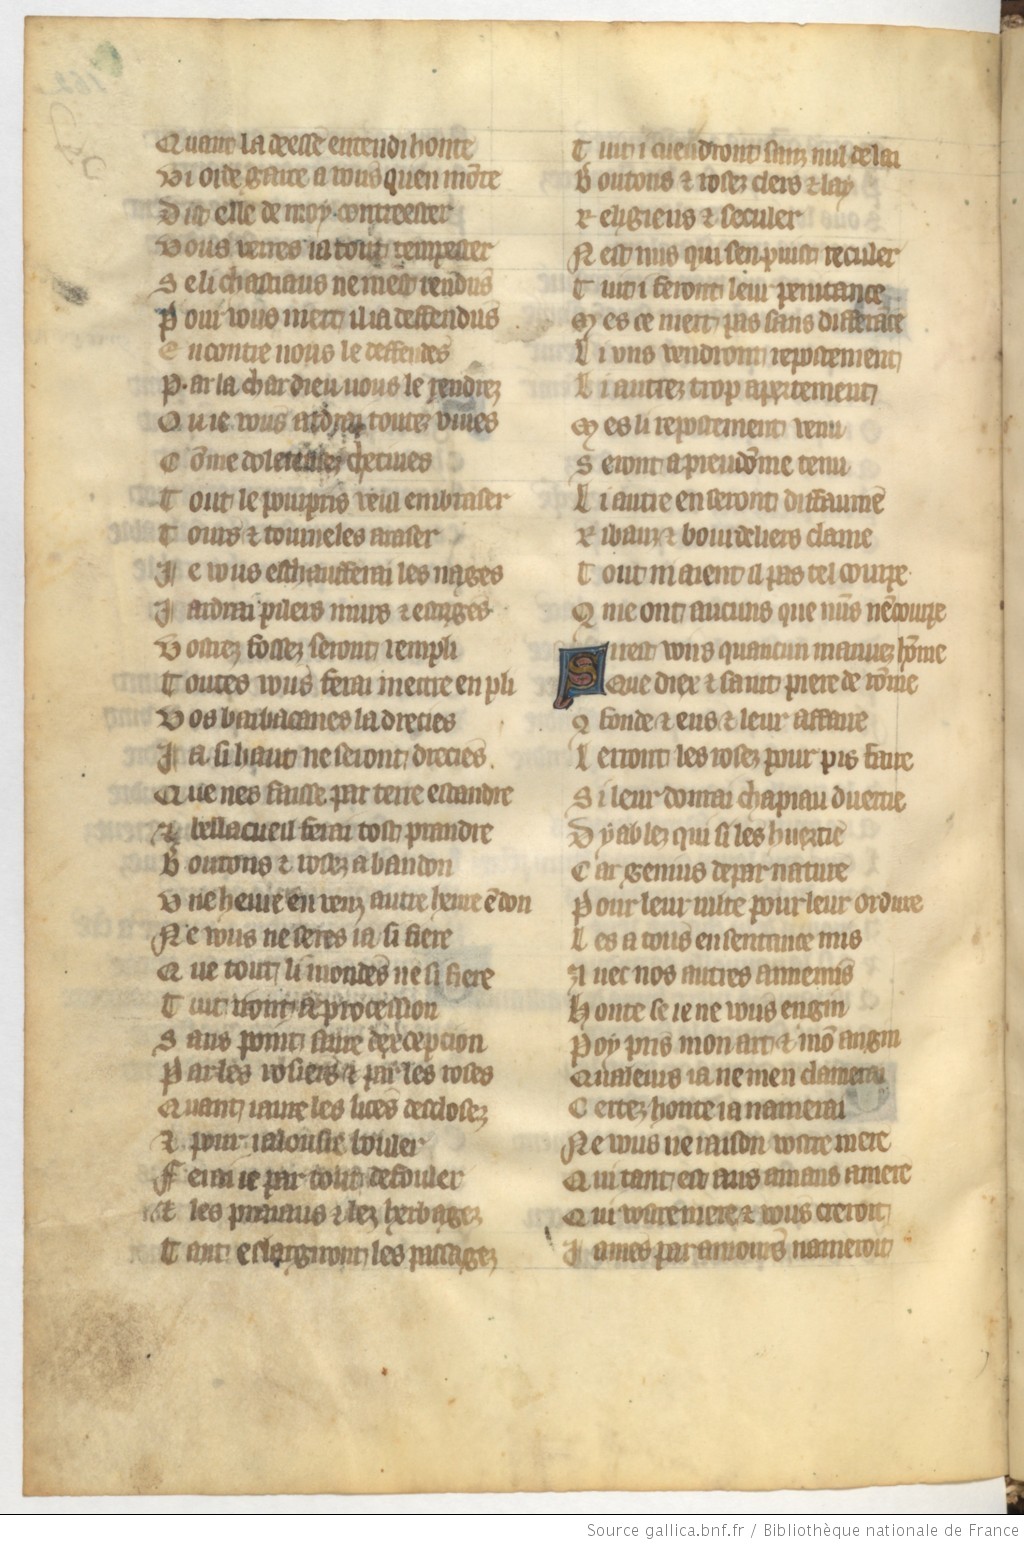 Quant la deesse entendi honte
Vi orde garce a vous quen mōte
Dist elle de moy contreester
Vous verres ia tout tempester
Se li chastiaus ne mest rendus
Por vous niert il ia deffendus
Encontre nous le deffendes
Par la char dieu vous le rendrez
Ou ie vous ardrai toutez viues
Cōme dolentez chetiues
Tout le pourpris veul embraser
Tours & tourneles araser
Je vous eschaufferai les nages
Jardrai pilers murs & estages
Vostrez fossez seront rempli
Toutes vous ferai metre en pli
Vos barbacanes la drecies
Ja si haut ne seront drecies
Que nes faisse par terre estandre
& bellacueil ferai tost prandre
Boutons & rosez a bandon
Vne heure en venz autre heure ē don
Ne vous ne seres ia si fiere
Que tout li mondes ne si fiere
Tuit iront a procession
Sans point faire dexcepcion
Par les rosiers & par les roses
Quant iaurai les lices desclosez
& pour ialousie bouler
Ferai ie par tout defouler
& les praiaus & lez herbagez
Tant eslargiront les passagez
Tuit i cuendront sanz nul delai
Boutons & rosez clers & lay
Religieus & seculer
Nest nus qui sen puist reculer
Tuit i feront leur penitance
Mes ce niert pas sans differāce
Li vns vendront repostement
Li autrez trop apertement
Mes li repostement venu
Seront a preudōme tenu
Li autre en seront diffamē
Ribauz & bourdeliers clame
Tout ni aient il pas tel courpe
Que ont aucuns que nus nē courpe
Si rest voirs quaucun mauuez hōme
Que diex & saint pierre de rōme
Confonde & eus & leur affaire
Leront les rosez pour pis faire
Si leur donrai chapiau dortie
Dyablez qui si les huertie
Car genius de par nature
Pour leur vilte pour leur ordure
Les a tous en sentance mis
Auec nos autres annemis
Honte se ie ne vous engin
Poy pris mon art & mō angin
Qualeurs ia ne men clamerai
Certez honte ia namerai
Ne vous ne raison vostre mere
Qui tant est aus amans amere
Qui vostre mere & vous creroit
James par amours nameroit
Source gallica.bnf.fr / Bibliothèque nationale de France